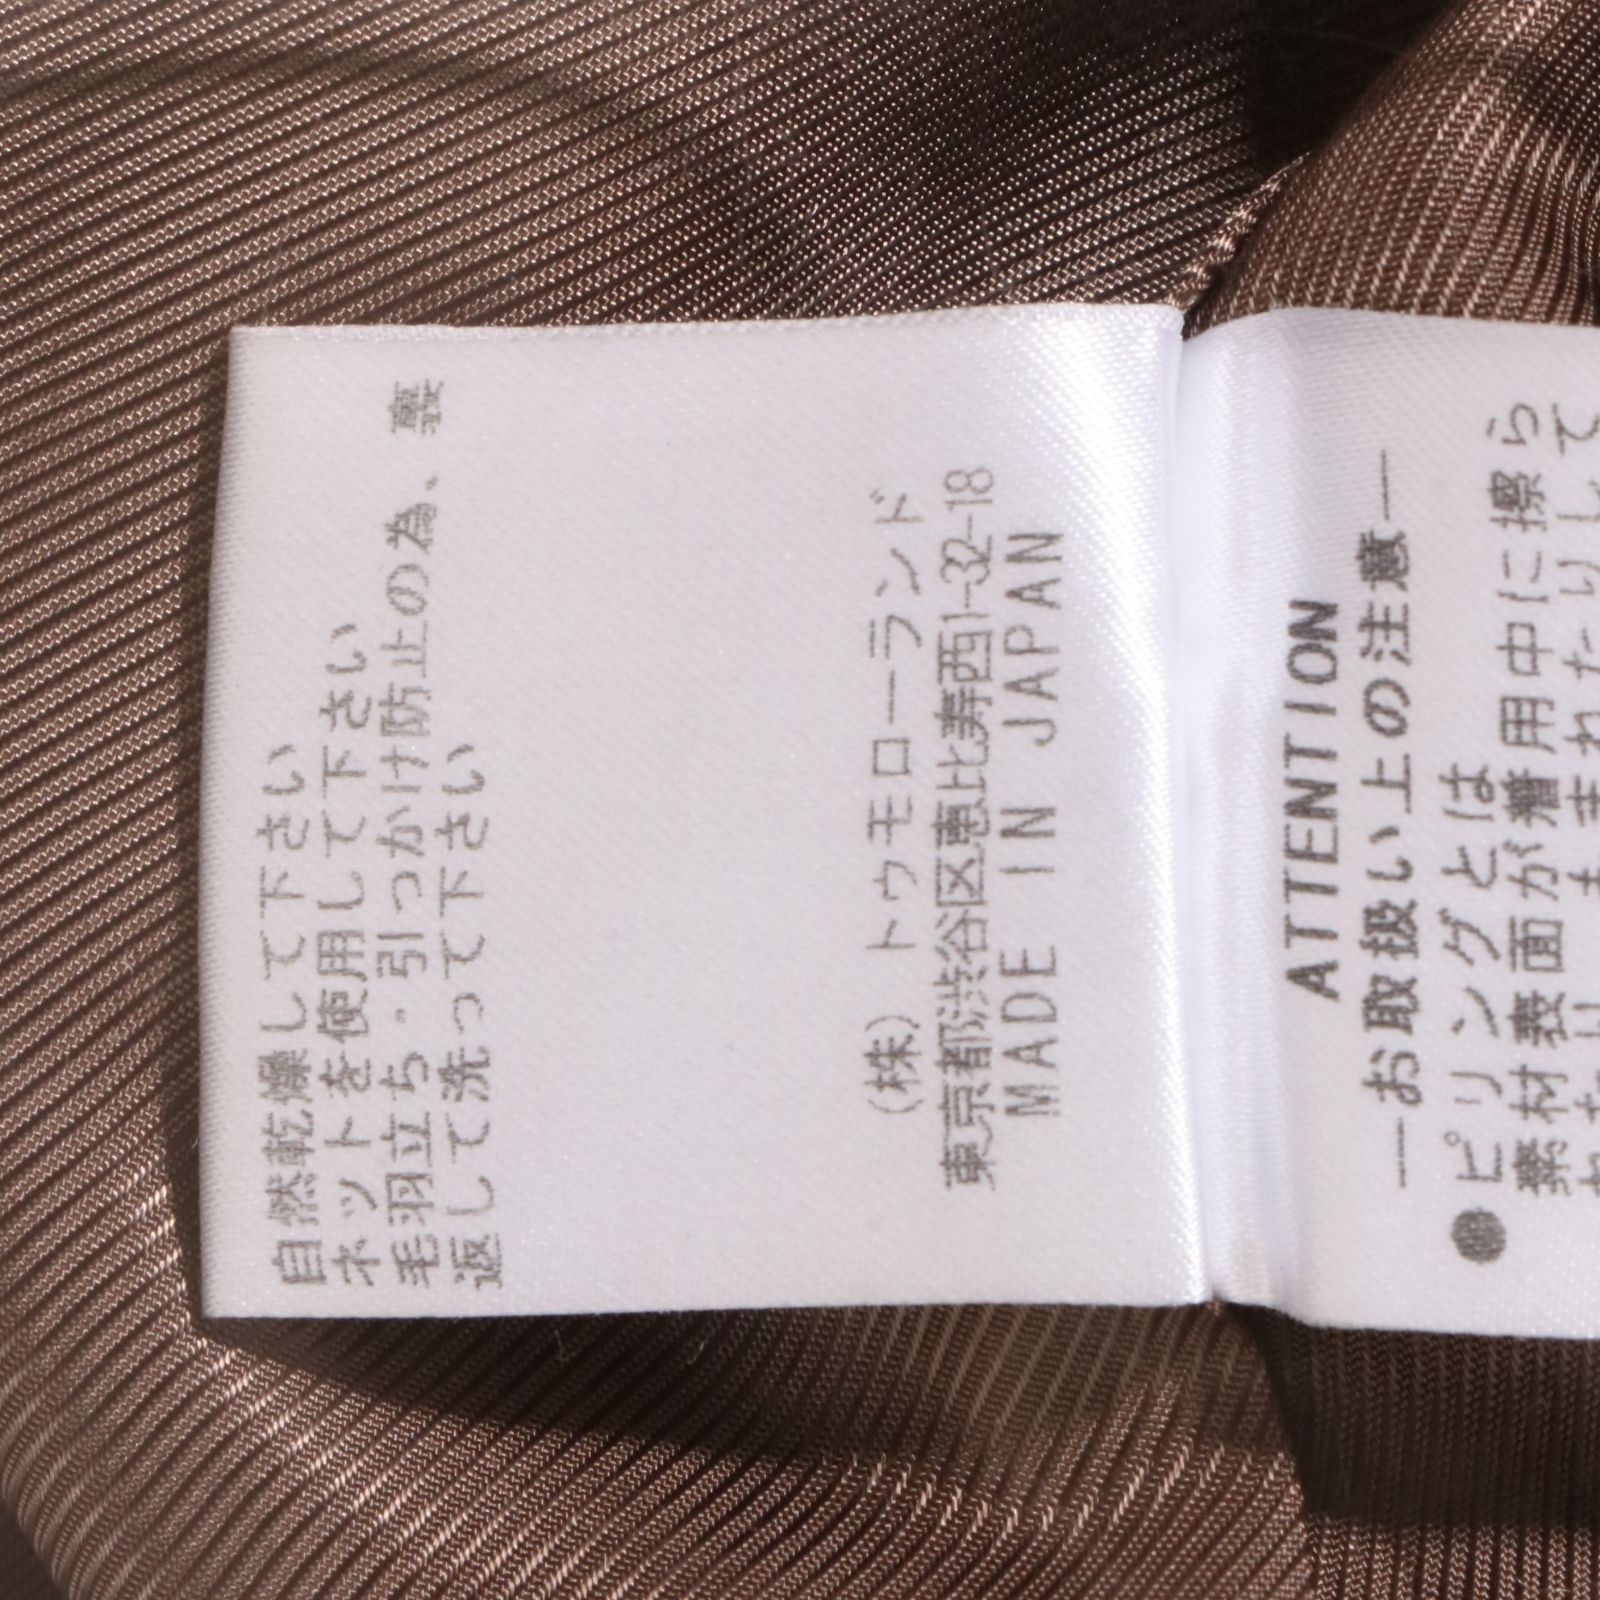 自然乾燥して下さい
ネットを使用して下さい
毛羽立ち・引っかけ防止の為、裏
返して洗って下さい
(株) トゥモローランド
東京都渋谷区恵比寿西1-32-18
MADE IN JAPAN
ATTENTION
―お取扱い上の注意―
●ピリングとは
素材表面が着用中に擦ら